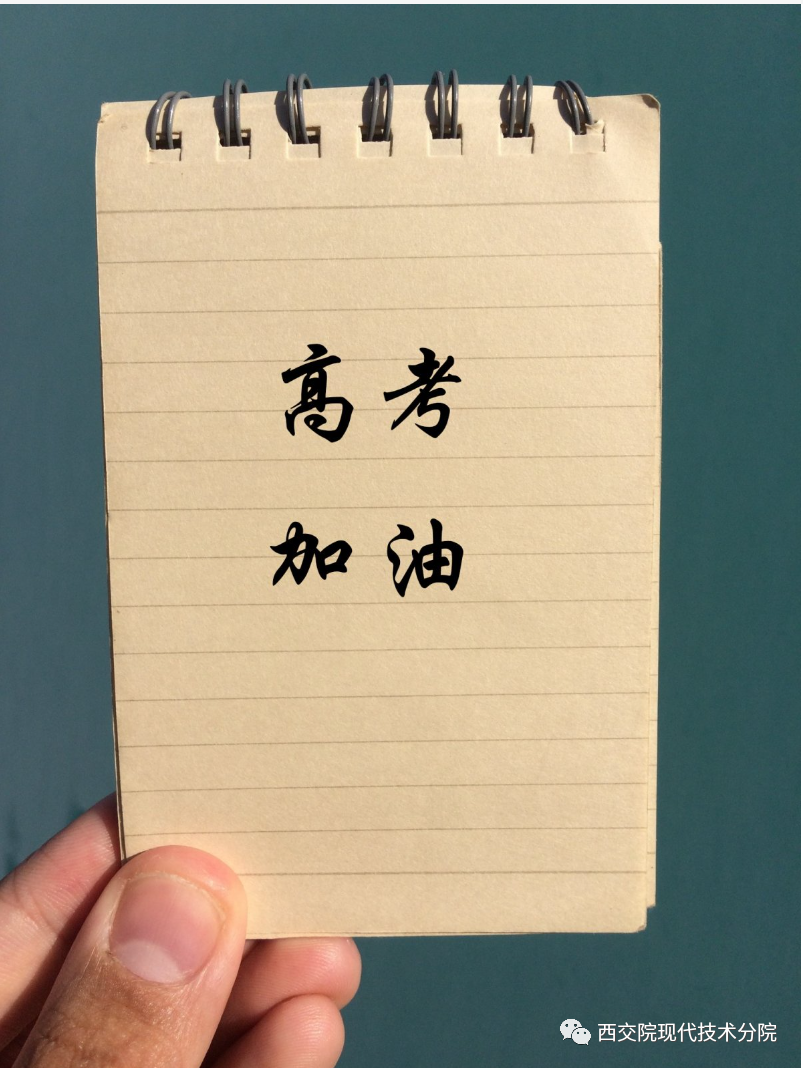 高考
加油
西交院现代技术分院